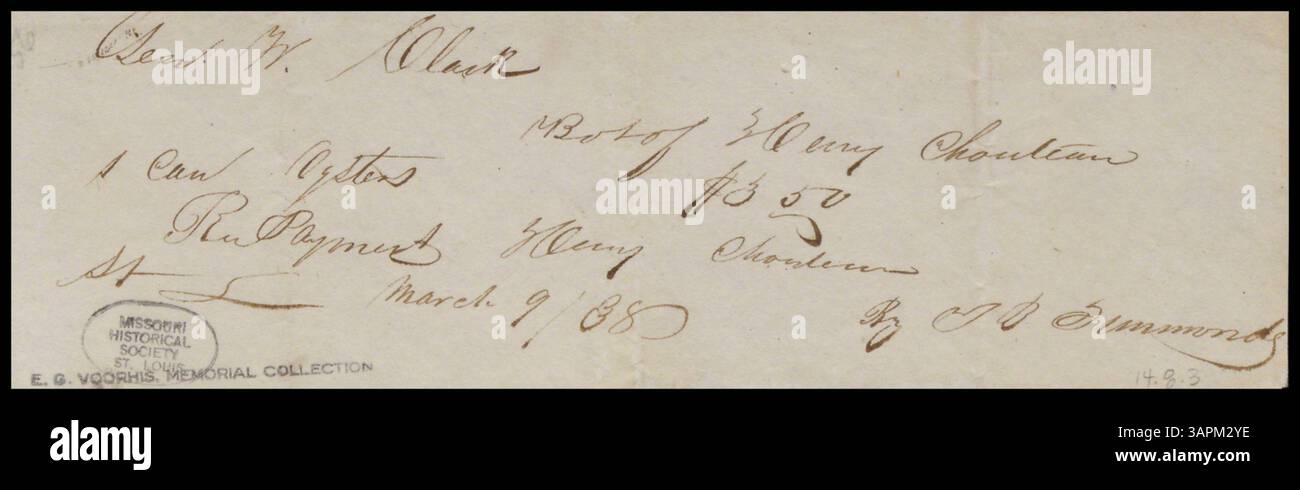 Genl. W. Clark
Bot of Henry Chouteau
1 Can Oysters $3 50
Rec Payment Henry Chouteau
St L March 9/38 By J B Simmonds
MISSOURI
HISTORICAL
SOCIETY
ST. LOUIS
E. G. VOORHIS. MEMORIAL COLLECTION
14.8.3
alamy
alamy
a
a
a
a
alamy
Image ID: 3APM2YE
www.alamy.com